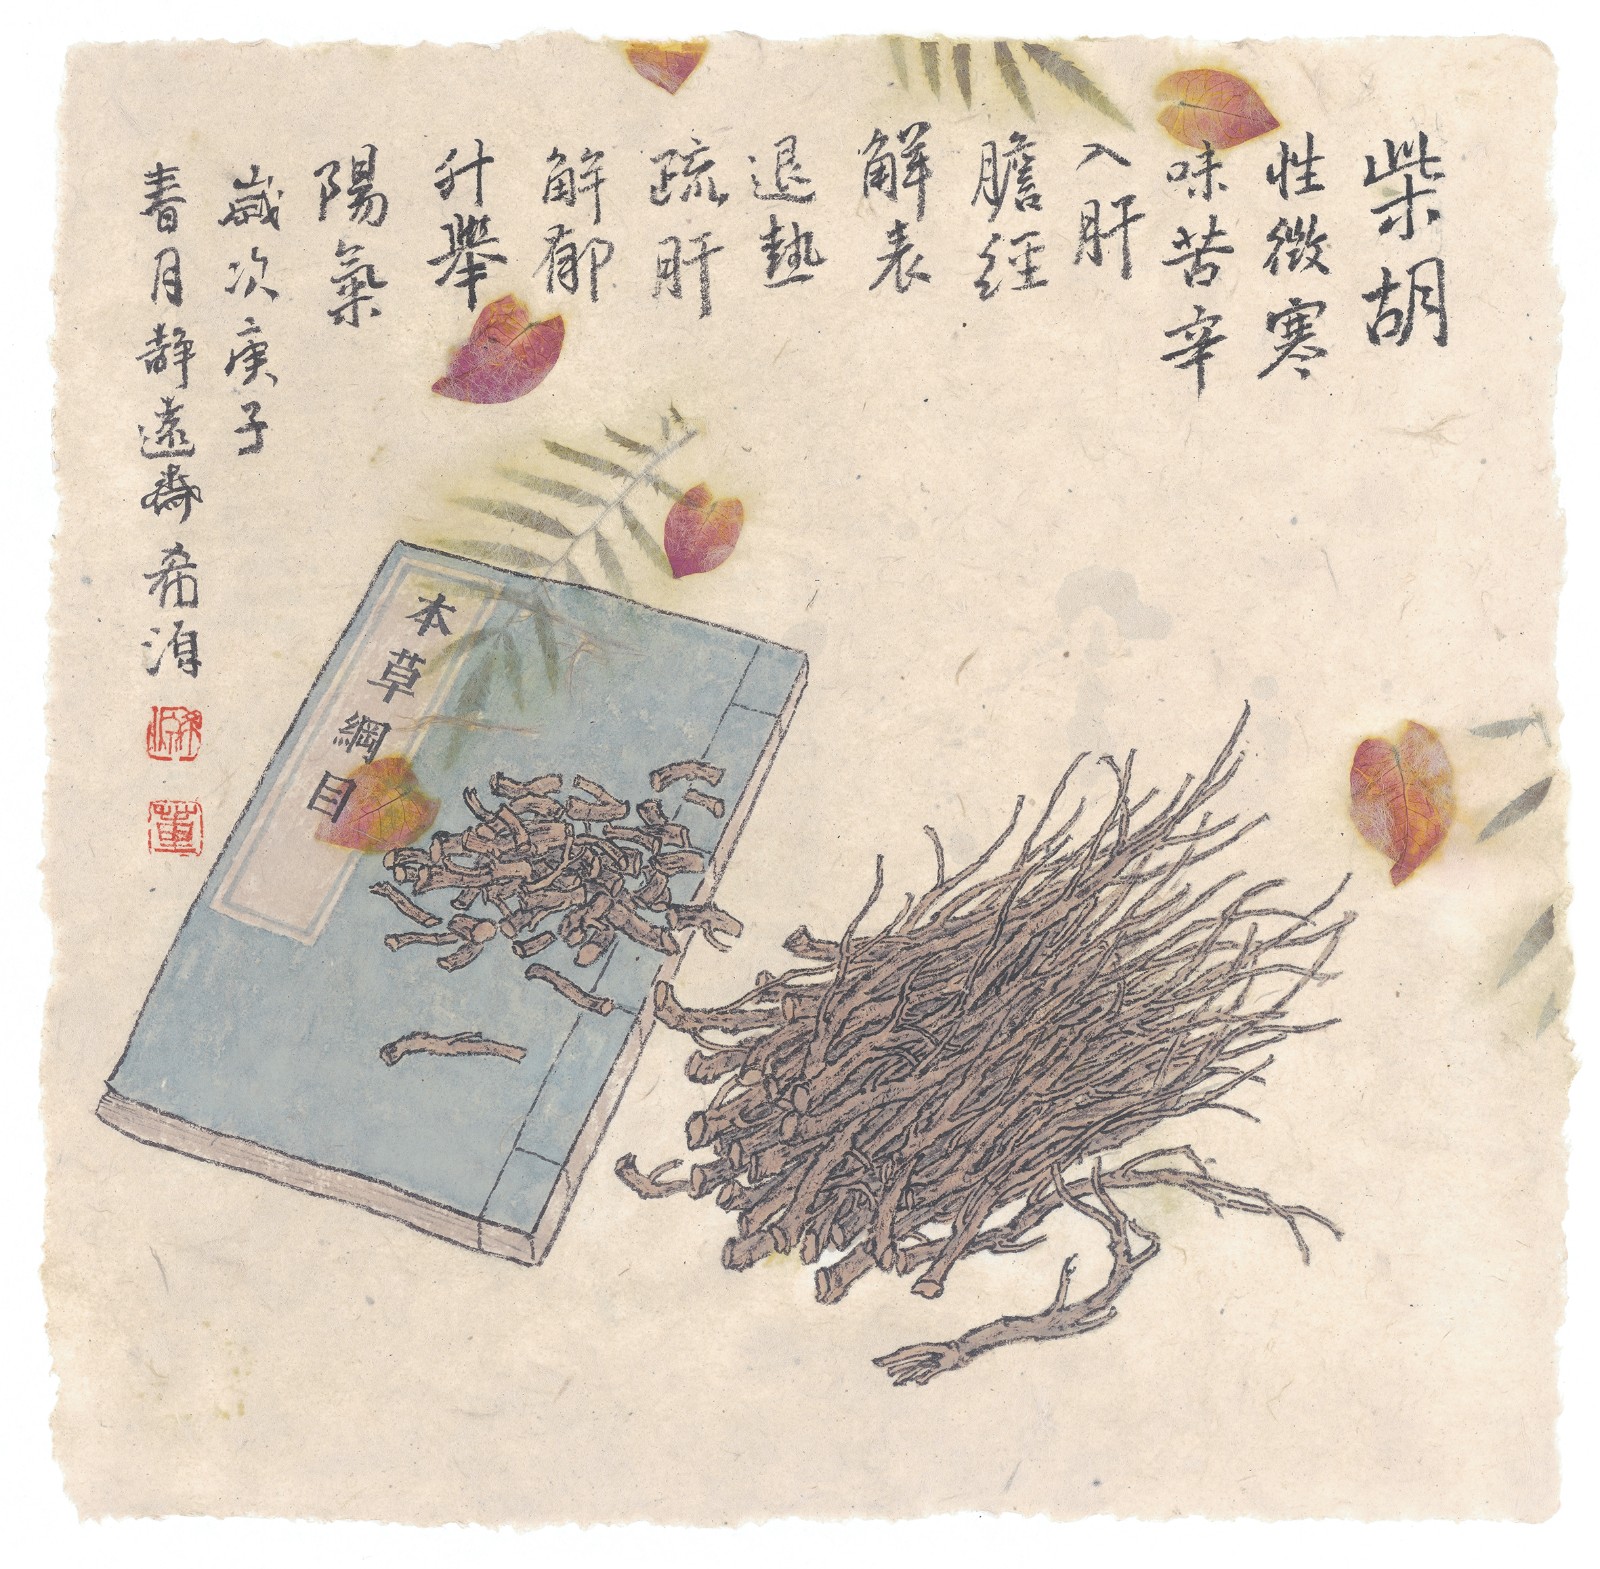 柴胡
性微寒
味苦辛
入肝
膽經
解表
退熱
疏肝
解郁
升舉
陽氣
歲次庚子
春月靜遠齋希洎
本草綱目
董